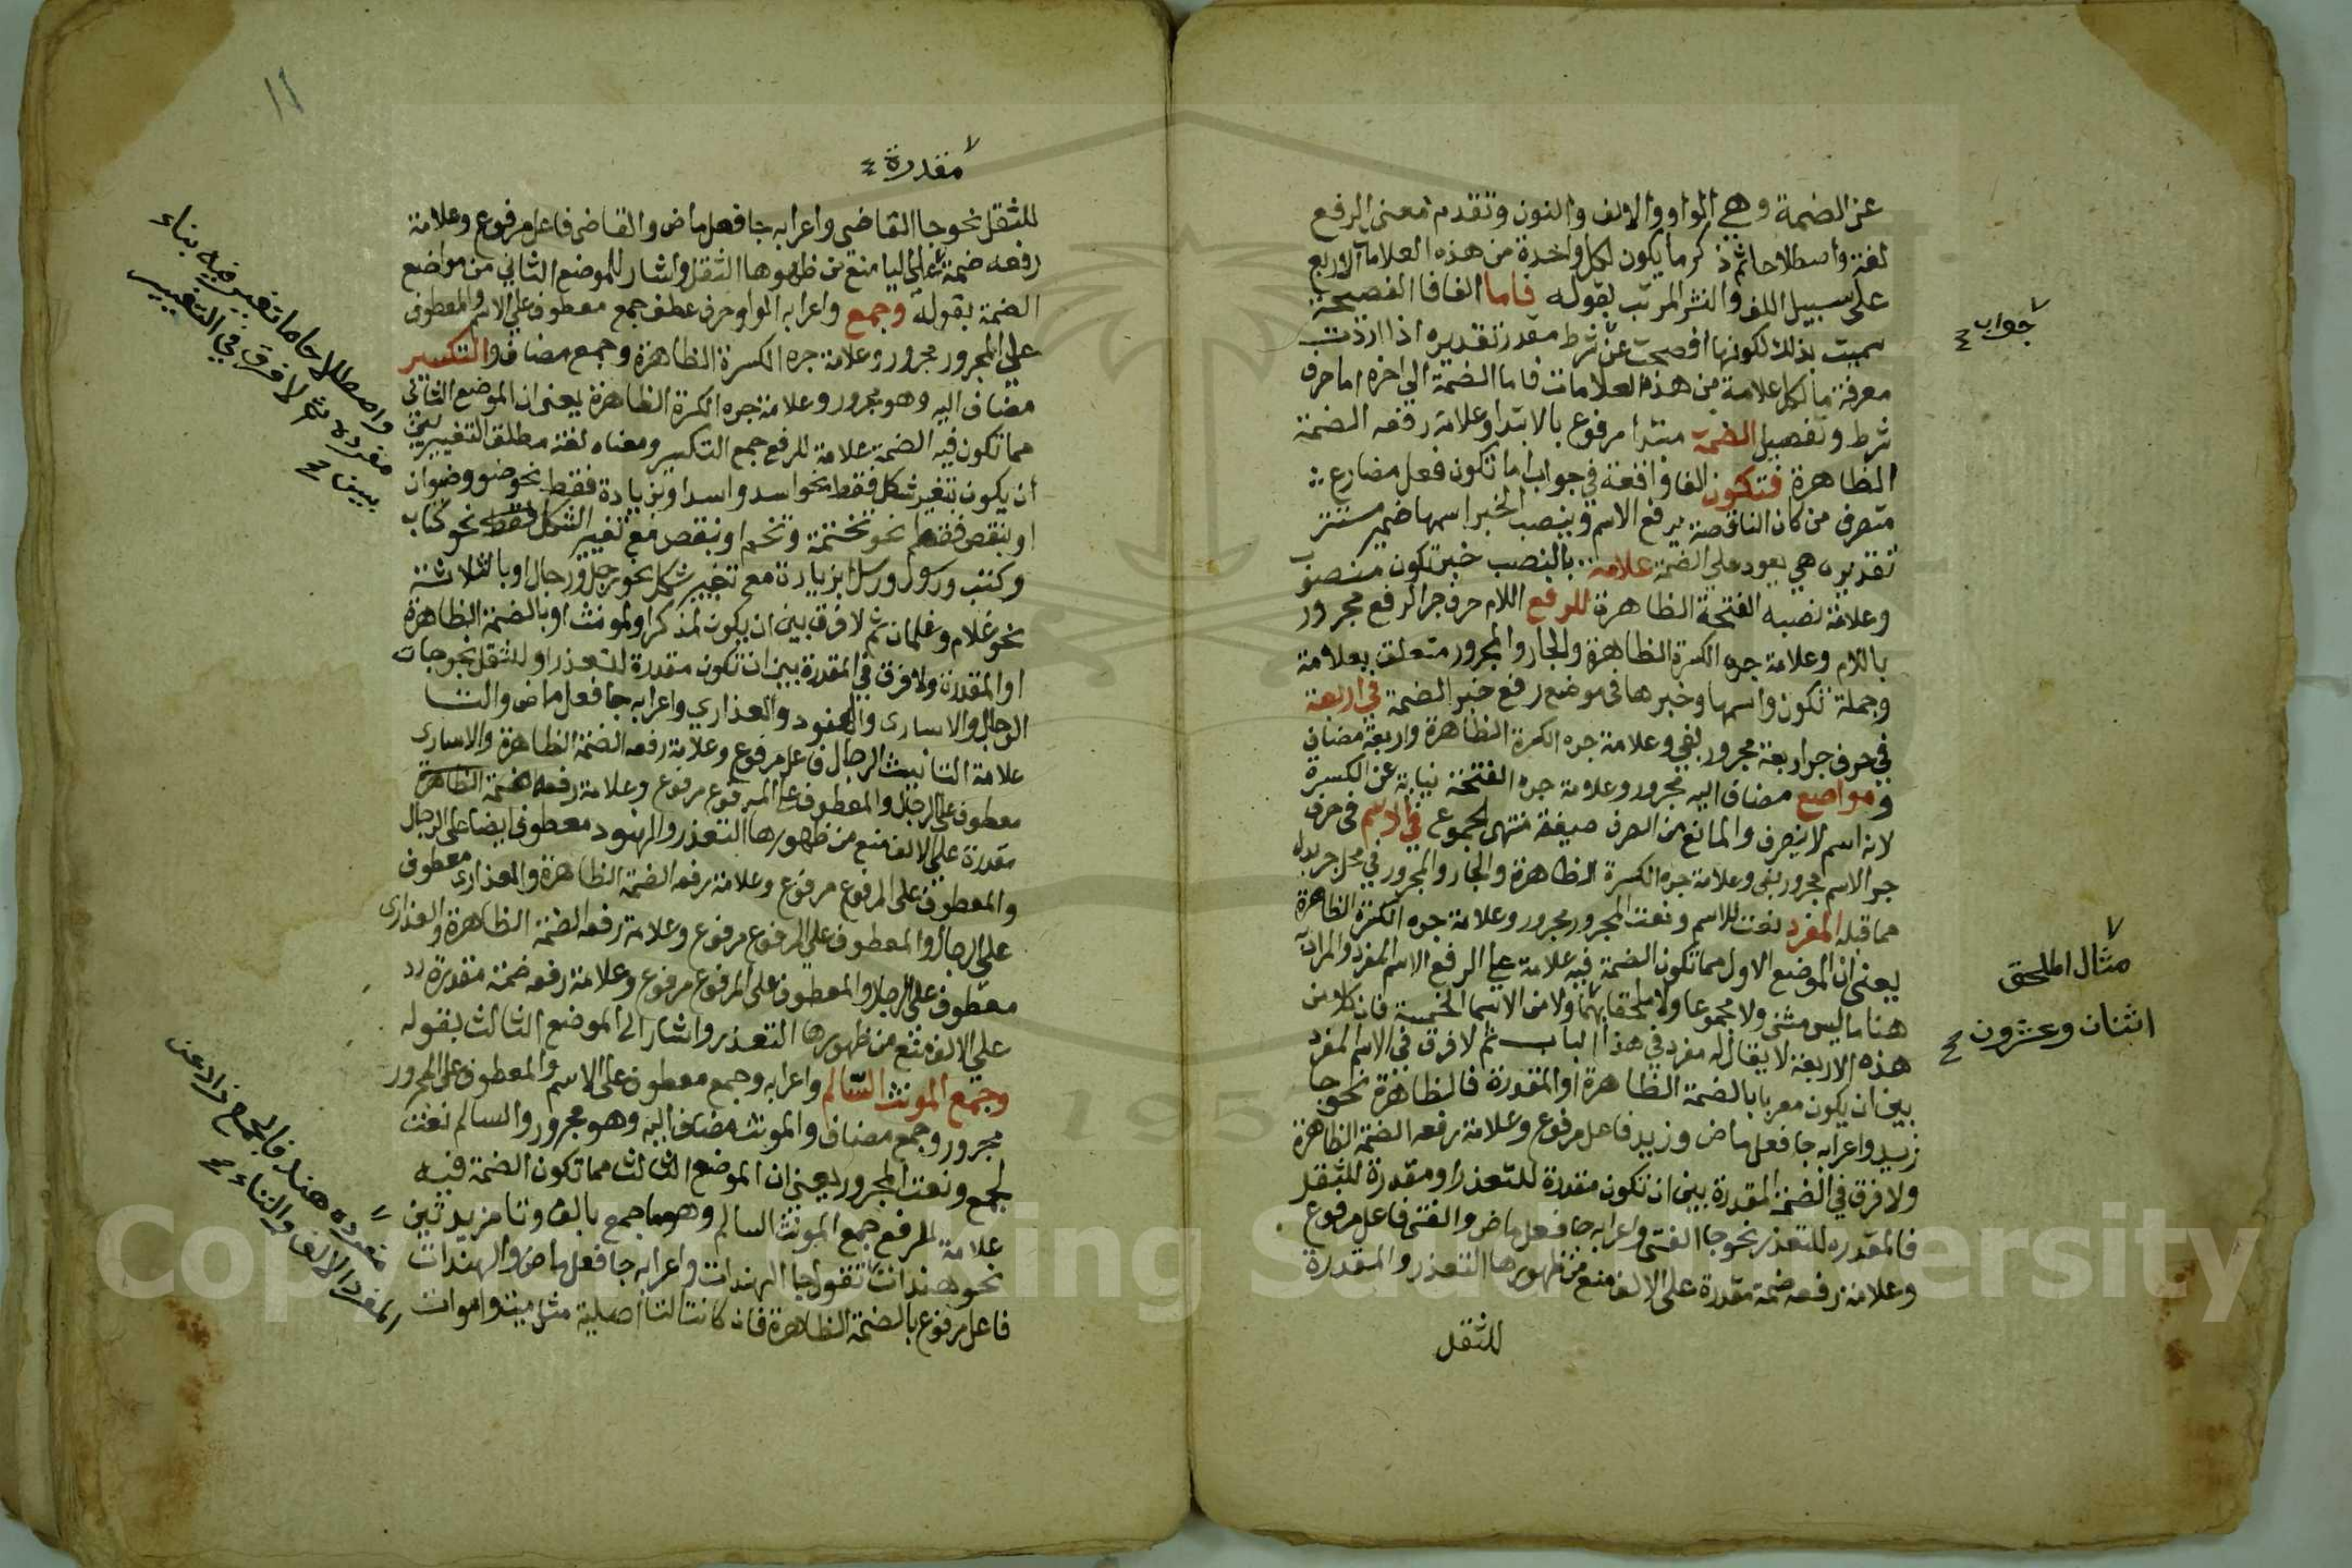 عن الضمة وهي الواو والالف والنون وتقدم معنى الرفع
لغة واصطلاحا ثم ذكر ما يكون لكل واحدة من هذه العلامات الاربع
على سبيل اللف والنشر المرتب بقوله فاما الفا فا الفصيحة
سميت بذلك لكونها افصحت عن شرط مقدر تقديره اذا اردت
معرفة ما لكل علامة من هذه العلامات فاما الضمة الي اخره اما حرف
شرط وتفصيل الضمة مبتدأ مرفوع بالابتدا وعلامة رفعه الضمة
الظاهرة فتكون الفا واقعة في جواب اما تكون فعل مضارع
متصرف من كان الناقصة يرفع الاسم وينصب الخبر اسمها ضمير مستتر
تقديره هي يعود على الضمة علامة بالنصب خبر تكون منصوب
وعلامة نصبه الفتحة الظاهرة للرفع اللام حرف جر الرفع مجرور
باللام وعلامة جره الكسرة الظاهرة والجار والمجرور متعلق بعلامة
وجملة تكون واسمها وخبرها في موضع رفع خبر الضمة في اربعة
في حرف جر اربعة مجرور بفي وعلامة جره الكسرة الظاهرة واربعة مضاف
و مواضع مضاف اليه مجرور وعلامة جره الفتحة نيابة عن الكسرة
لانه اسم لا ينصرف والمانع من الصرف صيغة منتهى الجموع في الاسم في حرف
جر الاسم مجرور بفي وعلامة جره الكسرة الظاهرة والجار والمجرور في محل جر بدل
مما قبله المفرد نعت للاسم ونعت المجرور مجرور وعلامة جره الكسرة الظاهرة
يعني ان الموضع الاول مما تكون الضمة فيه علامة على الرفع الاسم المفرد والمراد به
هنا ما ليس مثنى ولا مجموعا ولا ملحقا بهما ولا من الاسما الخمسة فان كلا من
هذه الاربعة لا يقال له مفرد في هذا الباب ثم لا فرق في الاسم المفرد
بين ان يكون معربا بالضمة الظاهرة او المقدرة فالظاهرة نحو جا
زيد واعرابه جا فعل ماض وزيد فاعل مرفوع وعلامة رفعه الضمة الظاهرة
ولا فرق في الضمة المقدرة بين ان تكون مقدرة للتعذر او مقدرة للثقل
فالمقدره للتعذر نحو جا الفتى واعرابه جا فعل ماض والفتى فاعل مرفوع
وعلامة رفعه ضمة مقدرة على الالف منع من ظهورها التعذر والمقدرة
للثقل
جواب
مثال الملحق
اثنان وعشرون
١١
مقدرة
للثقل نحو جا القاضي واعرابه جا فعل ماض والقاضي فاعل مرفوع وعلامة
رفعه ضمة على اليا منع من ظهورها الثقل واشار للموضع الثاني من مواضع
الضمة بقوله وجمع واعرابه الواو حرف عطف جمع معطوف على الاسم والمعطوف
على المجرور مجرور وعلامة جره الكسرة الظاهرة وجمع مضاف والتكسير
مضاف اليه وهو مجرور وعلامة جره الكسرة الظاهرة يعني ان الموضع الثاني
مما تكون فيه الضمة علامة للرفع جمع التكسير ومعناه لغة مطلق التغيير بين
ان يكون بتغير شكل فقط نحو اسد واسد او بزيادة فقط نحو صنو وصنوان
او بنقص فقط نحو تخمة وتخم او بنقص مع تغيير الشكل فقط نحو كتاب
وكتب ورسول ورسل او بزيادة مع تغيير شكل نحو رجل ورجال او بالثلاثة
نحو غلام وغلمان ثم لا فرق بين ان يكون لمذكر او لمونث او بالضمة الظاهرة
او المقدرة ولا فرق في المقدرة بين ان تكون مقدرة للتعذر او للثقل نحو جات
الرجال والاسارى والهنود والعذاري واعرابه جا فعل ماض والتا
علامة التانيث الرجال فاعل مرفوع وعلامة رفعه الضمة الظاهرة والاسارى
معطوف على الرجال والمعطوف على المرفوع مرفوع وعلامة رفعه ضمة الظاهرة
مقدرة على الالف منع من ظهورها التعذر والهنود معطوف ايضا على الرجال
والمعطوف على المرفوع مرفوع وعلامة رفعه الضمة الظاهرة والعذارى معطوف
على الرجال والمعطوف على المرفوع مرفوع وعلامة رفعه الضمة الظاهرة والعذارى
معطوف على الرجال والمعطوف على المرفوع مرفوع وعلامة رفعه ضمة مقدرة
على الالف منع من ظهورها التعذر واشار الى الموضع الثالث بقوله
وجمع المونث السالم واعرابه وجمع معطوف على الاسم والمعطوف على المجرور
مجرور وجمع مضاف والمونث مضاف اليه وهو مجرور والسالم نعت
لجمع ونعت المجرور يعني ان الموضع الثالث مما تكون الضمة فيه
علامة للرفع جمع المونث السالم وهو ما جمع بالف وتا مزيدتين
نحو هندات تقول جا الهندات واعرابه جا فعل ماض والهندات
فاعل مرفوع بالضمة الظاهرة فان كانت التا اصلية مثل ميت واموات
واصطلاحا ما تغير فيه بناء
مفرده ثم لا فرق في التغيير
بين
مفرده هند فالجمع زاد عن
المفرد الالف والتاء
Copyright © King Saud University
195